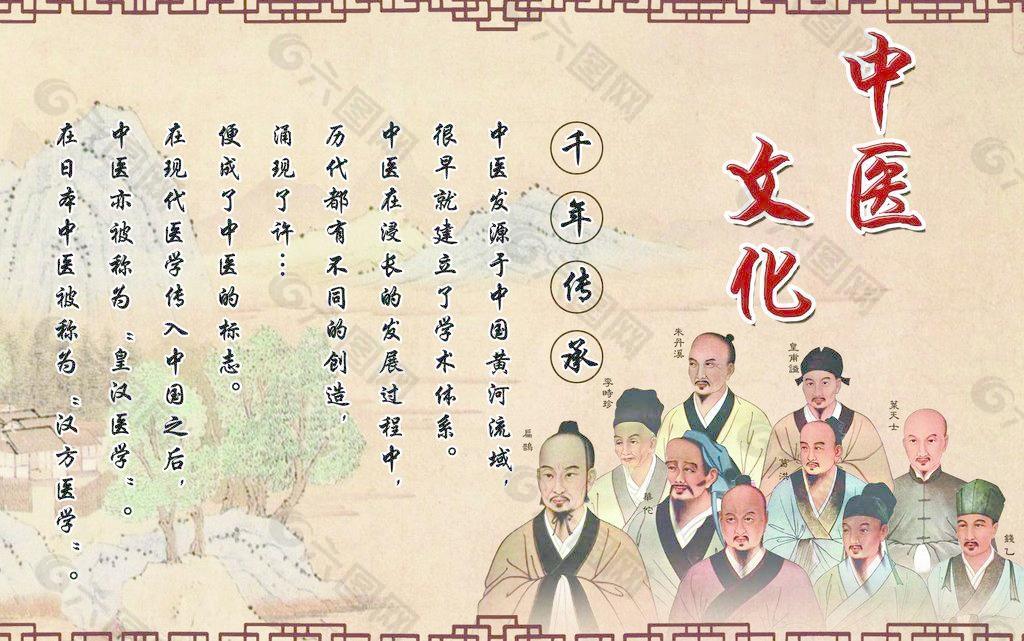 中医
文化
千年传承
中医发源于中国黄河流域，
很早就建立了学术体系。
中医在浸长的发展过程中，
历代都有不同的创造，
涌现了许…
便成了中医的标志。
在现代医学传入中国之后，
中医亦被称为“皇汉医学”。
在日本中医被称为“汉方医学”。
皇甫謐
朱丹溪
葉天士
李時珍
葛洪
扁鵲
華佗
錢乙
六图网